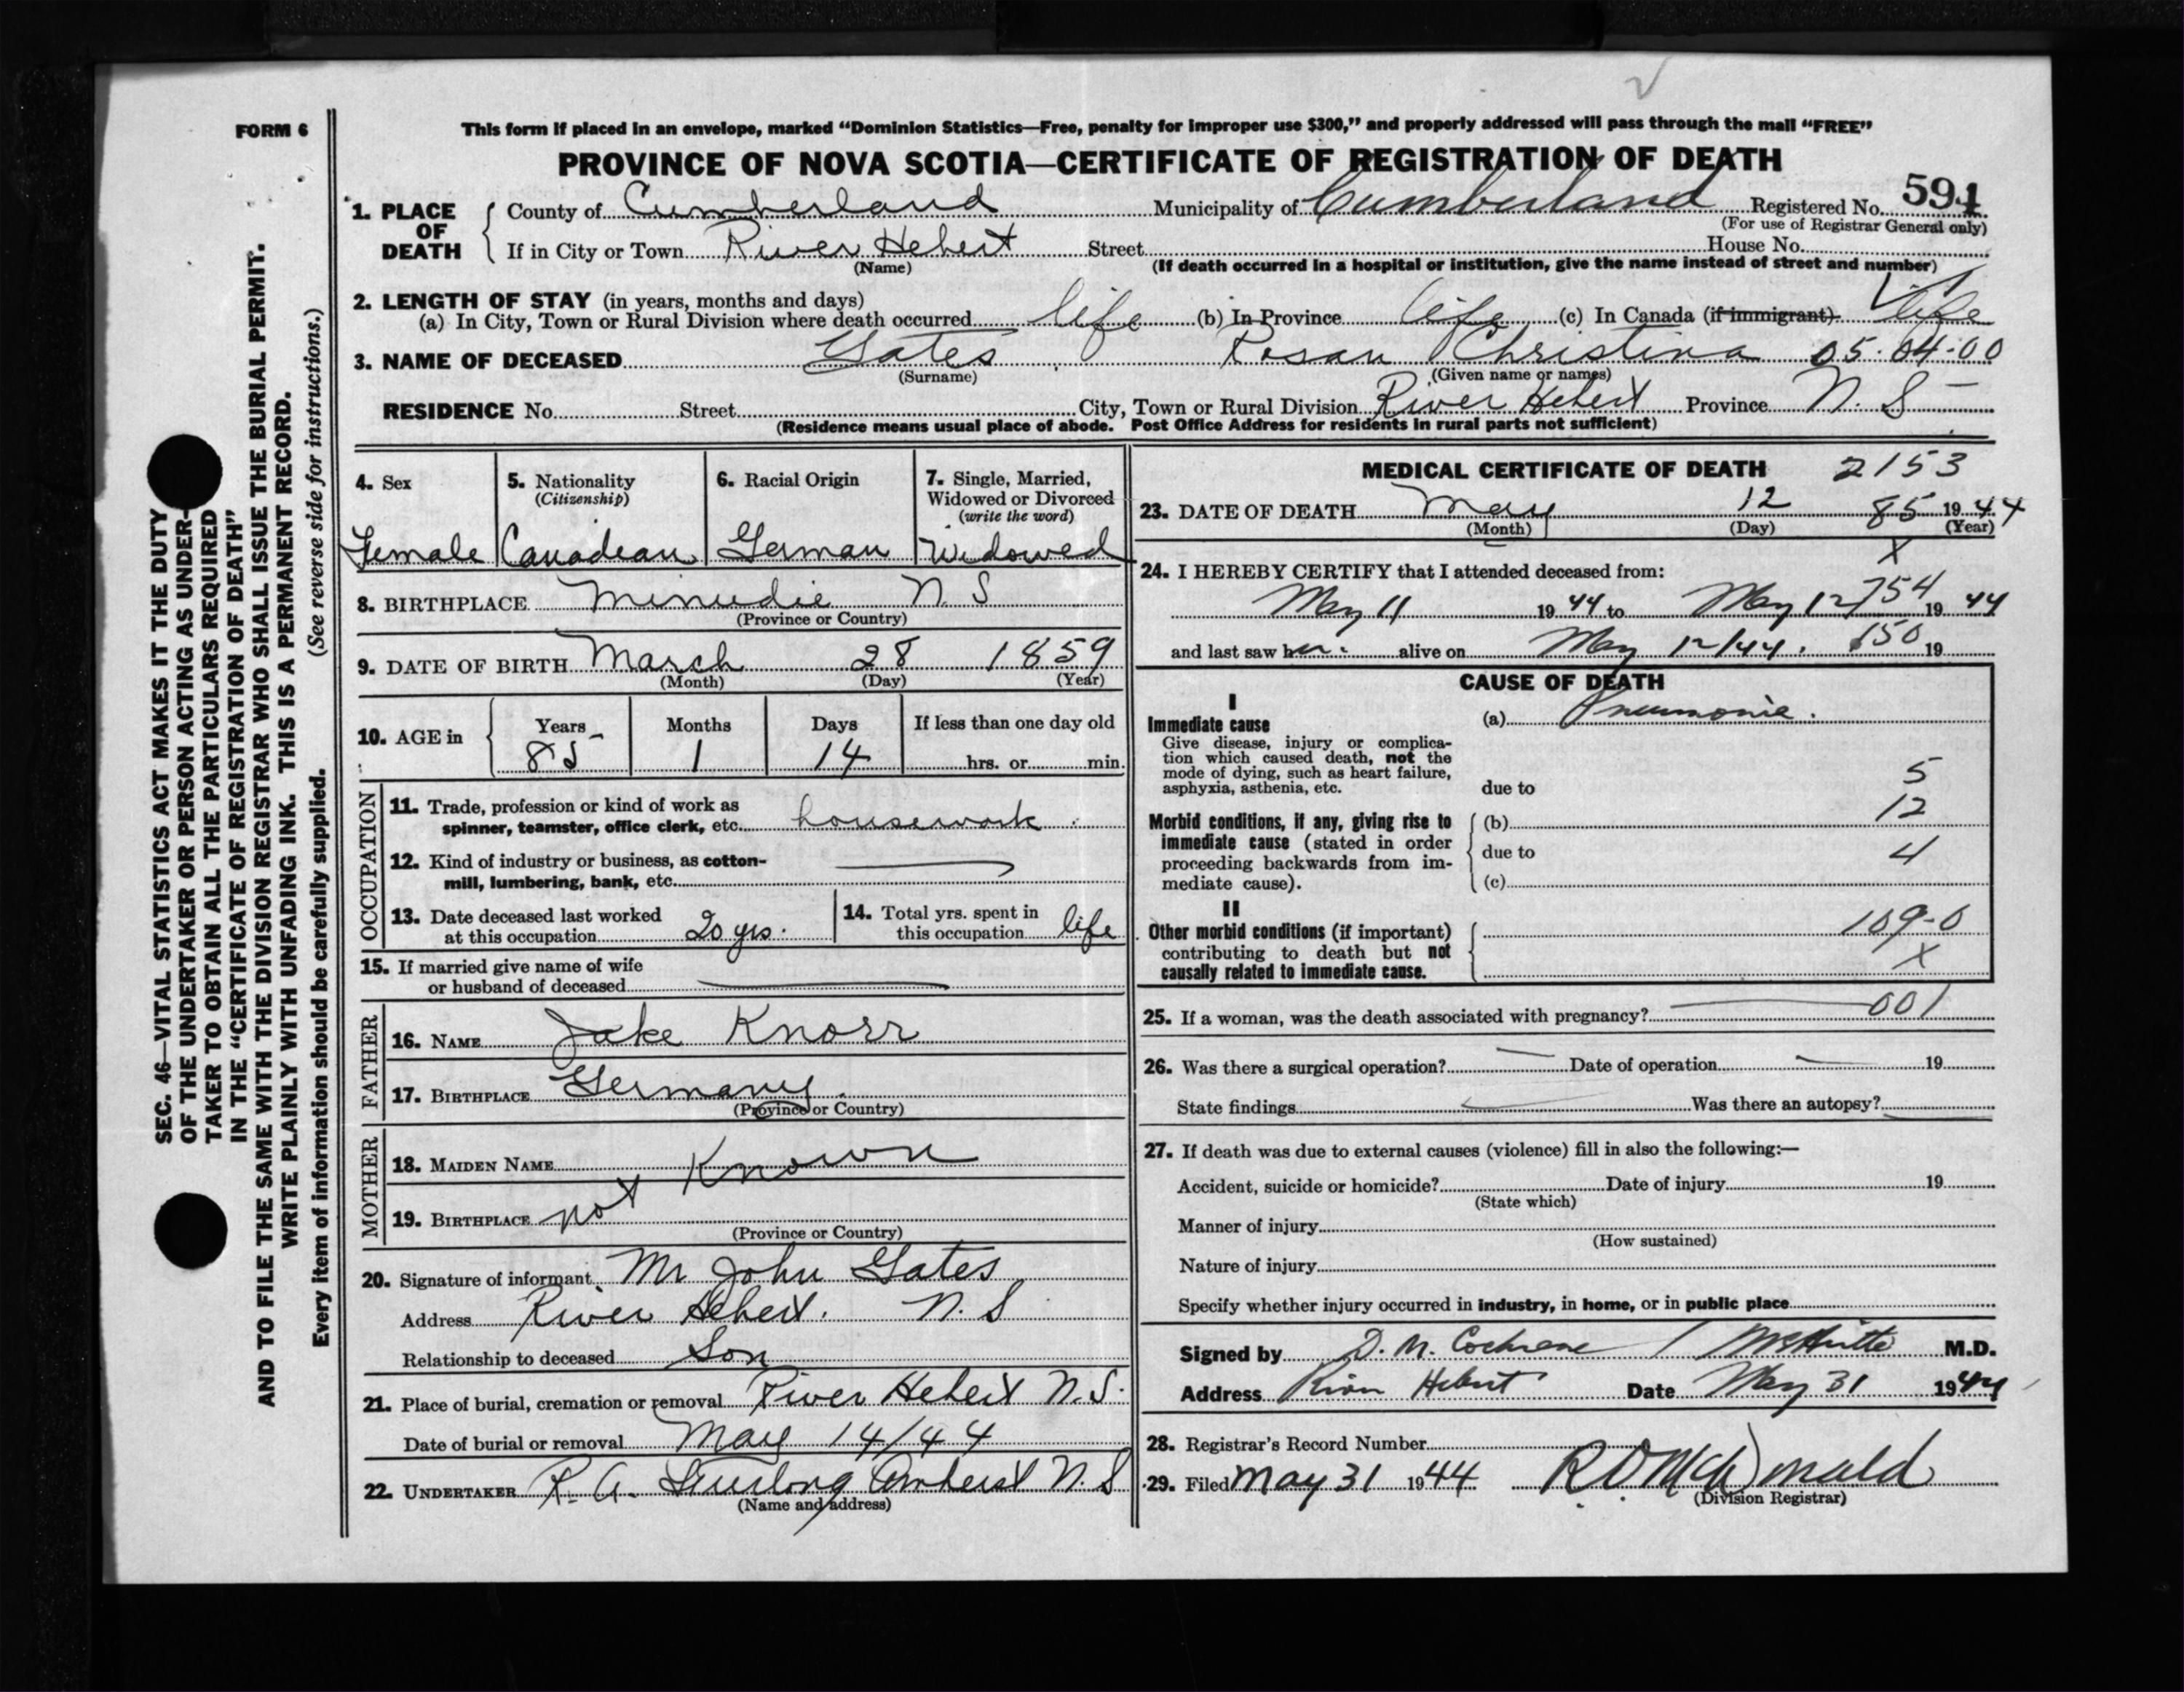 FORM 6
This form if placed in an envelope, marked “Dominion Statistics—Free, penalty for improper use $300,” and properly addressed will pass through the mail “FREE”
PROVINCE OF NOVA SCOTIA—CERTIFICATE OF REGISTRATION OF DEATH
1. PLACE OF DEATH County of Cumberland Municipality of Cumberland Registered No. 594
(For use of Registrar General only)
If in City or Town River Hebert Street House No.
(Name) (If death occurred in a hospital or institution, give the name instead of street and number)
2. LENGTH OF STAY (in years, months and days)
(a) In City, Town or Rural Division where death occurred life (b) In Province life (c) In Canada (if immigrant) life
3. NAME OF DECEASED Gates Rosan Christina 05-04-00
(Surname) (Given name or names)
RESIDENCE No. Street City, Town or Rural Division River Hebert Province N. S
(Residence means usual place of abode. Post Office Address for residents in rural parts not sufficient)
4. Sex Female
5. Nationality (Citizenship) Canadean
6. Racial Origin German
7. Single, Married, Widowed or Divorced (write the word) Widowed
8. BIRTHPLACE Minudie N. S
(Province or Country)
9. DATE OF BIRTH March 28 1859
(Month) (Day) (Year)
10. AGE in Years 85 Months 1 Days 14 If less than one day old hrs. or min.
OCCUPATION
11. Trade, profession or kind of work as
spinner, teamster, office clerk, etc. housework
12. Kind of industry or business, as cotton-
mill, lumbering, bank, etc.
13. Date deceased last worked
at this occupation 20 yrs.
14. Total yrs. spent in
this occupation life
15. If married give name of wife
or husband of deceased
FATHER
16. NAME Jake Knorr
17. BIRTHPLACE Germany
(Province or Country)
MOTHER
18. MAIDEN NAME Known
19. BIRTHPLACE not
(Province or Country)
20. Signature of informant Mr John Gates
Address River Hebert. N. S
Relationship to deceased Son
21. Place of burial, cremation or removal River Hebert N. S.
Date of burial or removal May 14/44
22. UNDERTAKER R. A. Furlong Amherst N. S
(Name and address)
MEDICAL CERTIFICATE OF DEATH 2153
23. DATE OF DEATH May 12 85 1944
(Month) (Day) (Year)
X
24. I HEREBY CERTIFY that I attended deceased from:
May 11 1944 to May 12 754 1944
and last saw her alive on May 12/44. 150 19
CAUSE OF DEATH
I
Immediate cause
Give disease, injury or complica-
tion which caused death, not the
mode of dying, such as heart failure,
asphyxia, asthenia, etc.
(a) Pneumonia.
due to 5
Morbid conditions, if any, giving rise to
immediate cause (stated in order
proceeding backwards from im-
mediate cause).
(b) 12
due to 4
(c)
II
Other morbid conditions (if important)
contributing to death but not
causally related to immediate cause.
109-0
X
25. If a woman, was the death associated with pregnancy? 001
26. Was there a surgical operation? Date of operation 19
State findings Was there an autopsy?
27. If death was due to external causes (violence) fill in also the following:—
Accident, suicide or homicide? Date of injury 19
(State which)
Manner of injury
(How sustained)
Nature of injury
Specify whether injury occurred in industry, in home, or in public place
Signed by D. M. Cochrane M.D.
Address River Hebert Date May 31 1944
28. Registrar's Record Number
29. Filed May 31 1944
(Division Registrar)
SEC. 46—VITAL STATISTICS ACT MAKES IT THE DUTY
OF THE UNDERTAKER OR PERSON ACTING AS UNDER-
TAKER TO OBTAIN ALL THE PARTICULARS REQUIRED
IN THE “CERTIFICATE OF REGISTRATION OF DEATH”
AND TO FILE THE SAME WITH THE DIVISION REGISTRAR WHO SHALL ISSUE THE BURIAL PERMIT.
WRITE PLAINLY WITH UNFADING INK. THIS IS A PERMANENT RECORD.
Every item of information should be carefully supplied. (See reverse side for instructions.)